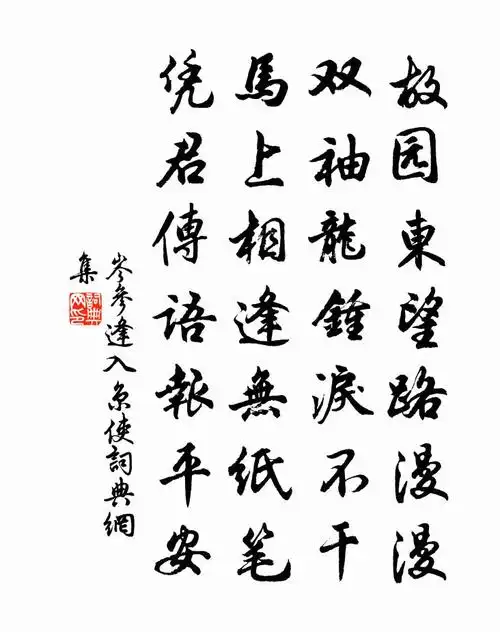 故园東望路漫漫
双袖龍鍾淚不干
馬上相逢無纸笔
凭君傳语報平安
岑参逢入京使詞典網
集